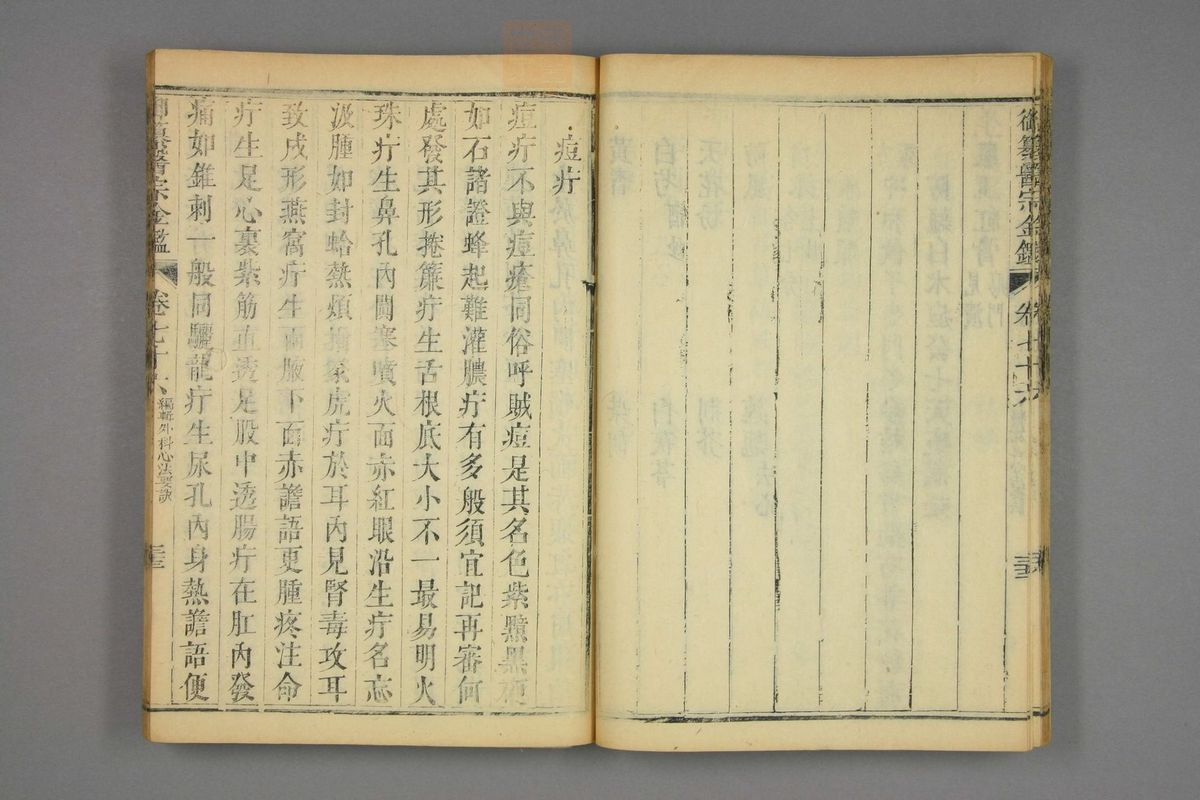 御纂醫宗金鑑
卷七十六
三三
痘疔
痘疔不與痘瘡同俗呼賊痘是其名色紫黯黑硬
如石諸證蜂起難灌膿疔有多般須宜記再審何
處發其形捲簾疔生舌根底大小不一最易明火
珠疔生鼻孔內闐塞噴火面赤紅眼沿生疔名忘
汲腫如封蛤熱煩 虎疔於耳內見腎毒攻耳
致成形燕窩疔生兩腋下面赤譫語更腫疼注命
疔生足心裏紫筋直透足股中透腸疔在肛內發
痛如錐刺一般同驪龍疔生尿孔內身熱譫語便
御纂醫宗金鑑
卷七十六
編輯外科心法要訣
三三